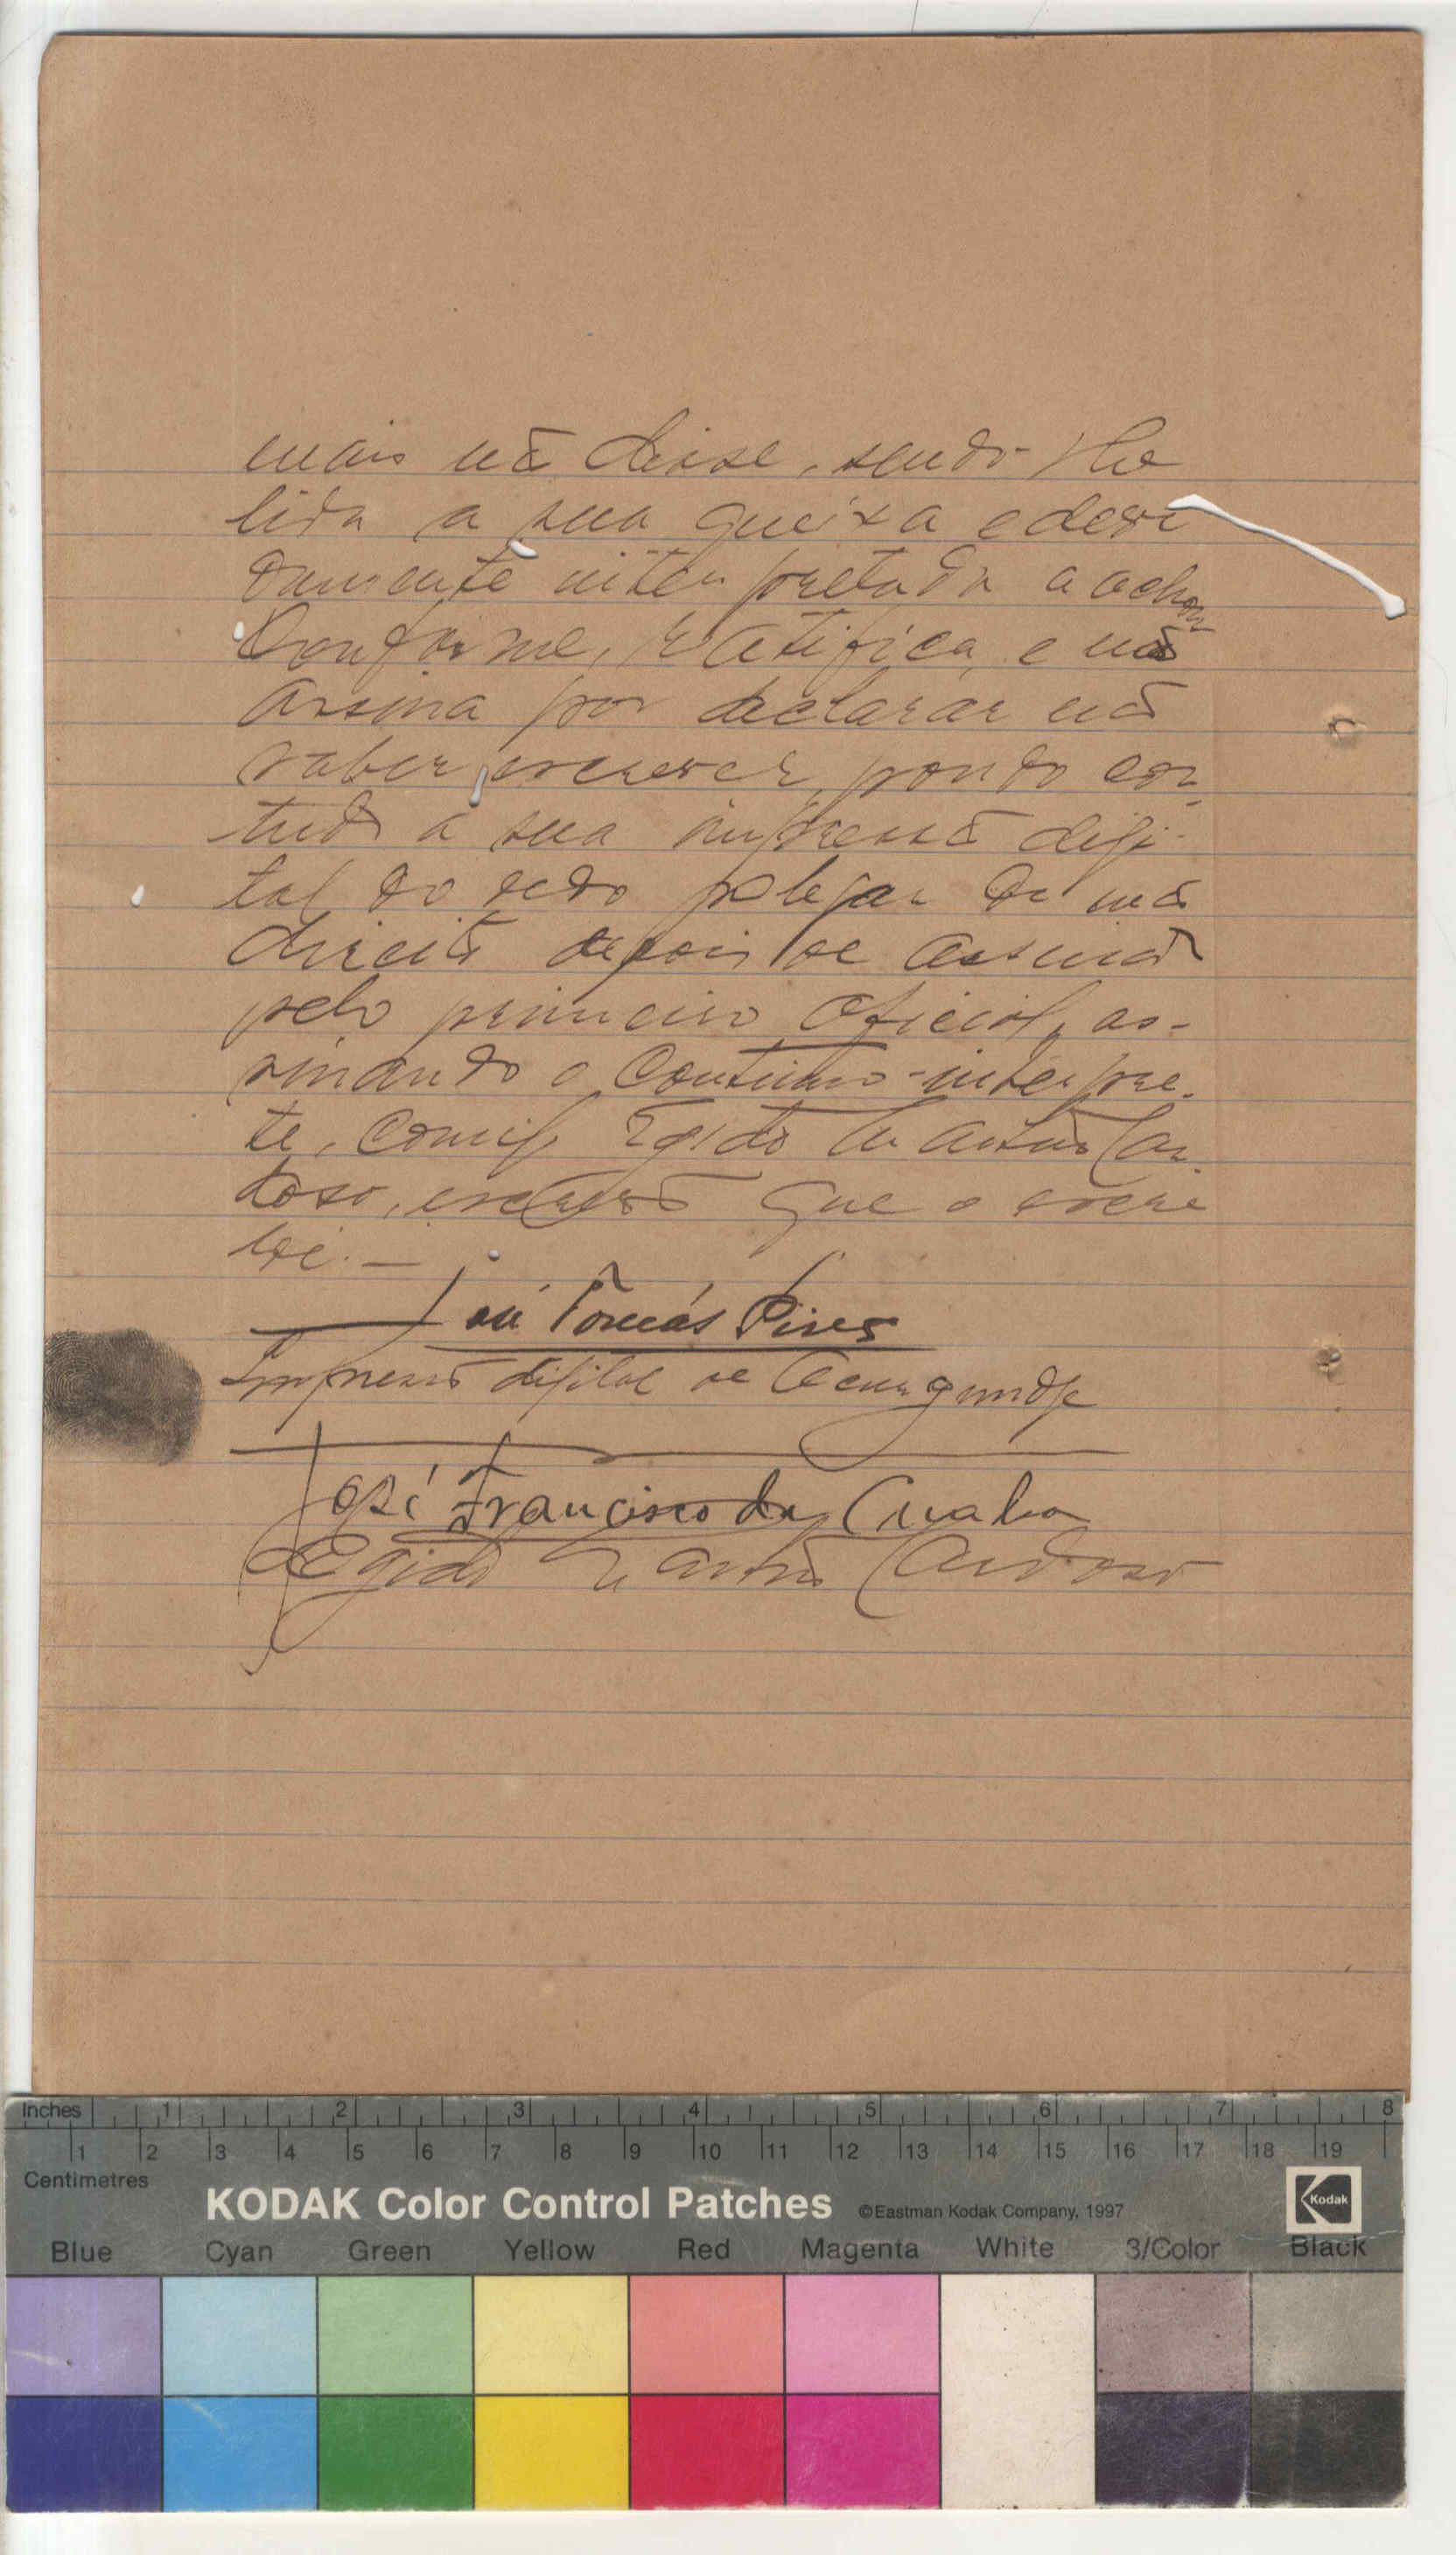 mais nã disse, sendo-lhe
lida a sua queixa e devi
damente inter pretada a achou
conforme, ratifica, e não
assina por declarar nã
saber escrever, pondo con-
tudo a sua impressã digi-
tal do dedo polegar da mã
direita depois de assinado
pelo primeiro oficial, as-
sinando o Contínuo-interpre-
te, comigo Egidio Car-
doso, que o escre
vi.—
José Tomás Pires
Impressão digital de
José Francisco da Cunha
Egidio Cardoso
Inches 1 2 3 4 5 6 7 8
1 2 3 4 5 6 7 8 9 10 11 12 13 14 15 16 17 18 19
Centimetres
KODAK Color Control Patches ©Eastman Kodak Company, 1997 Kodak
Blue Cyan Green Yellow Red Magenta White 3/Color Black